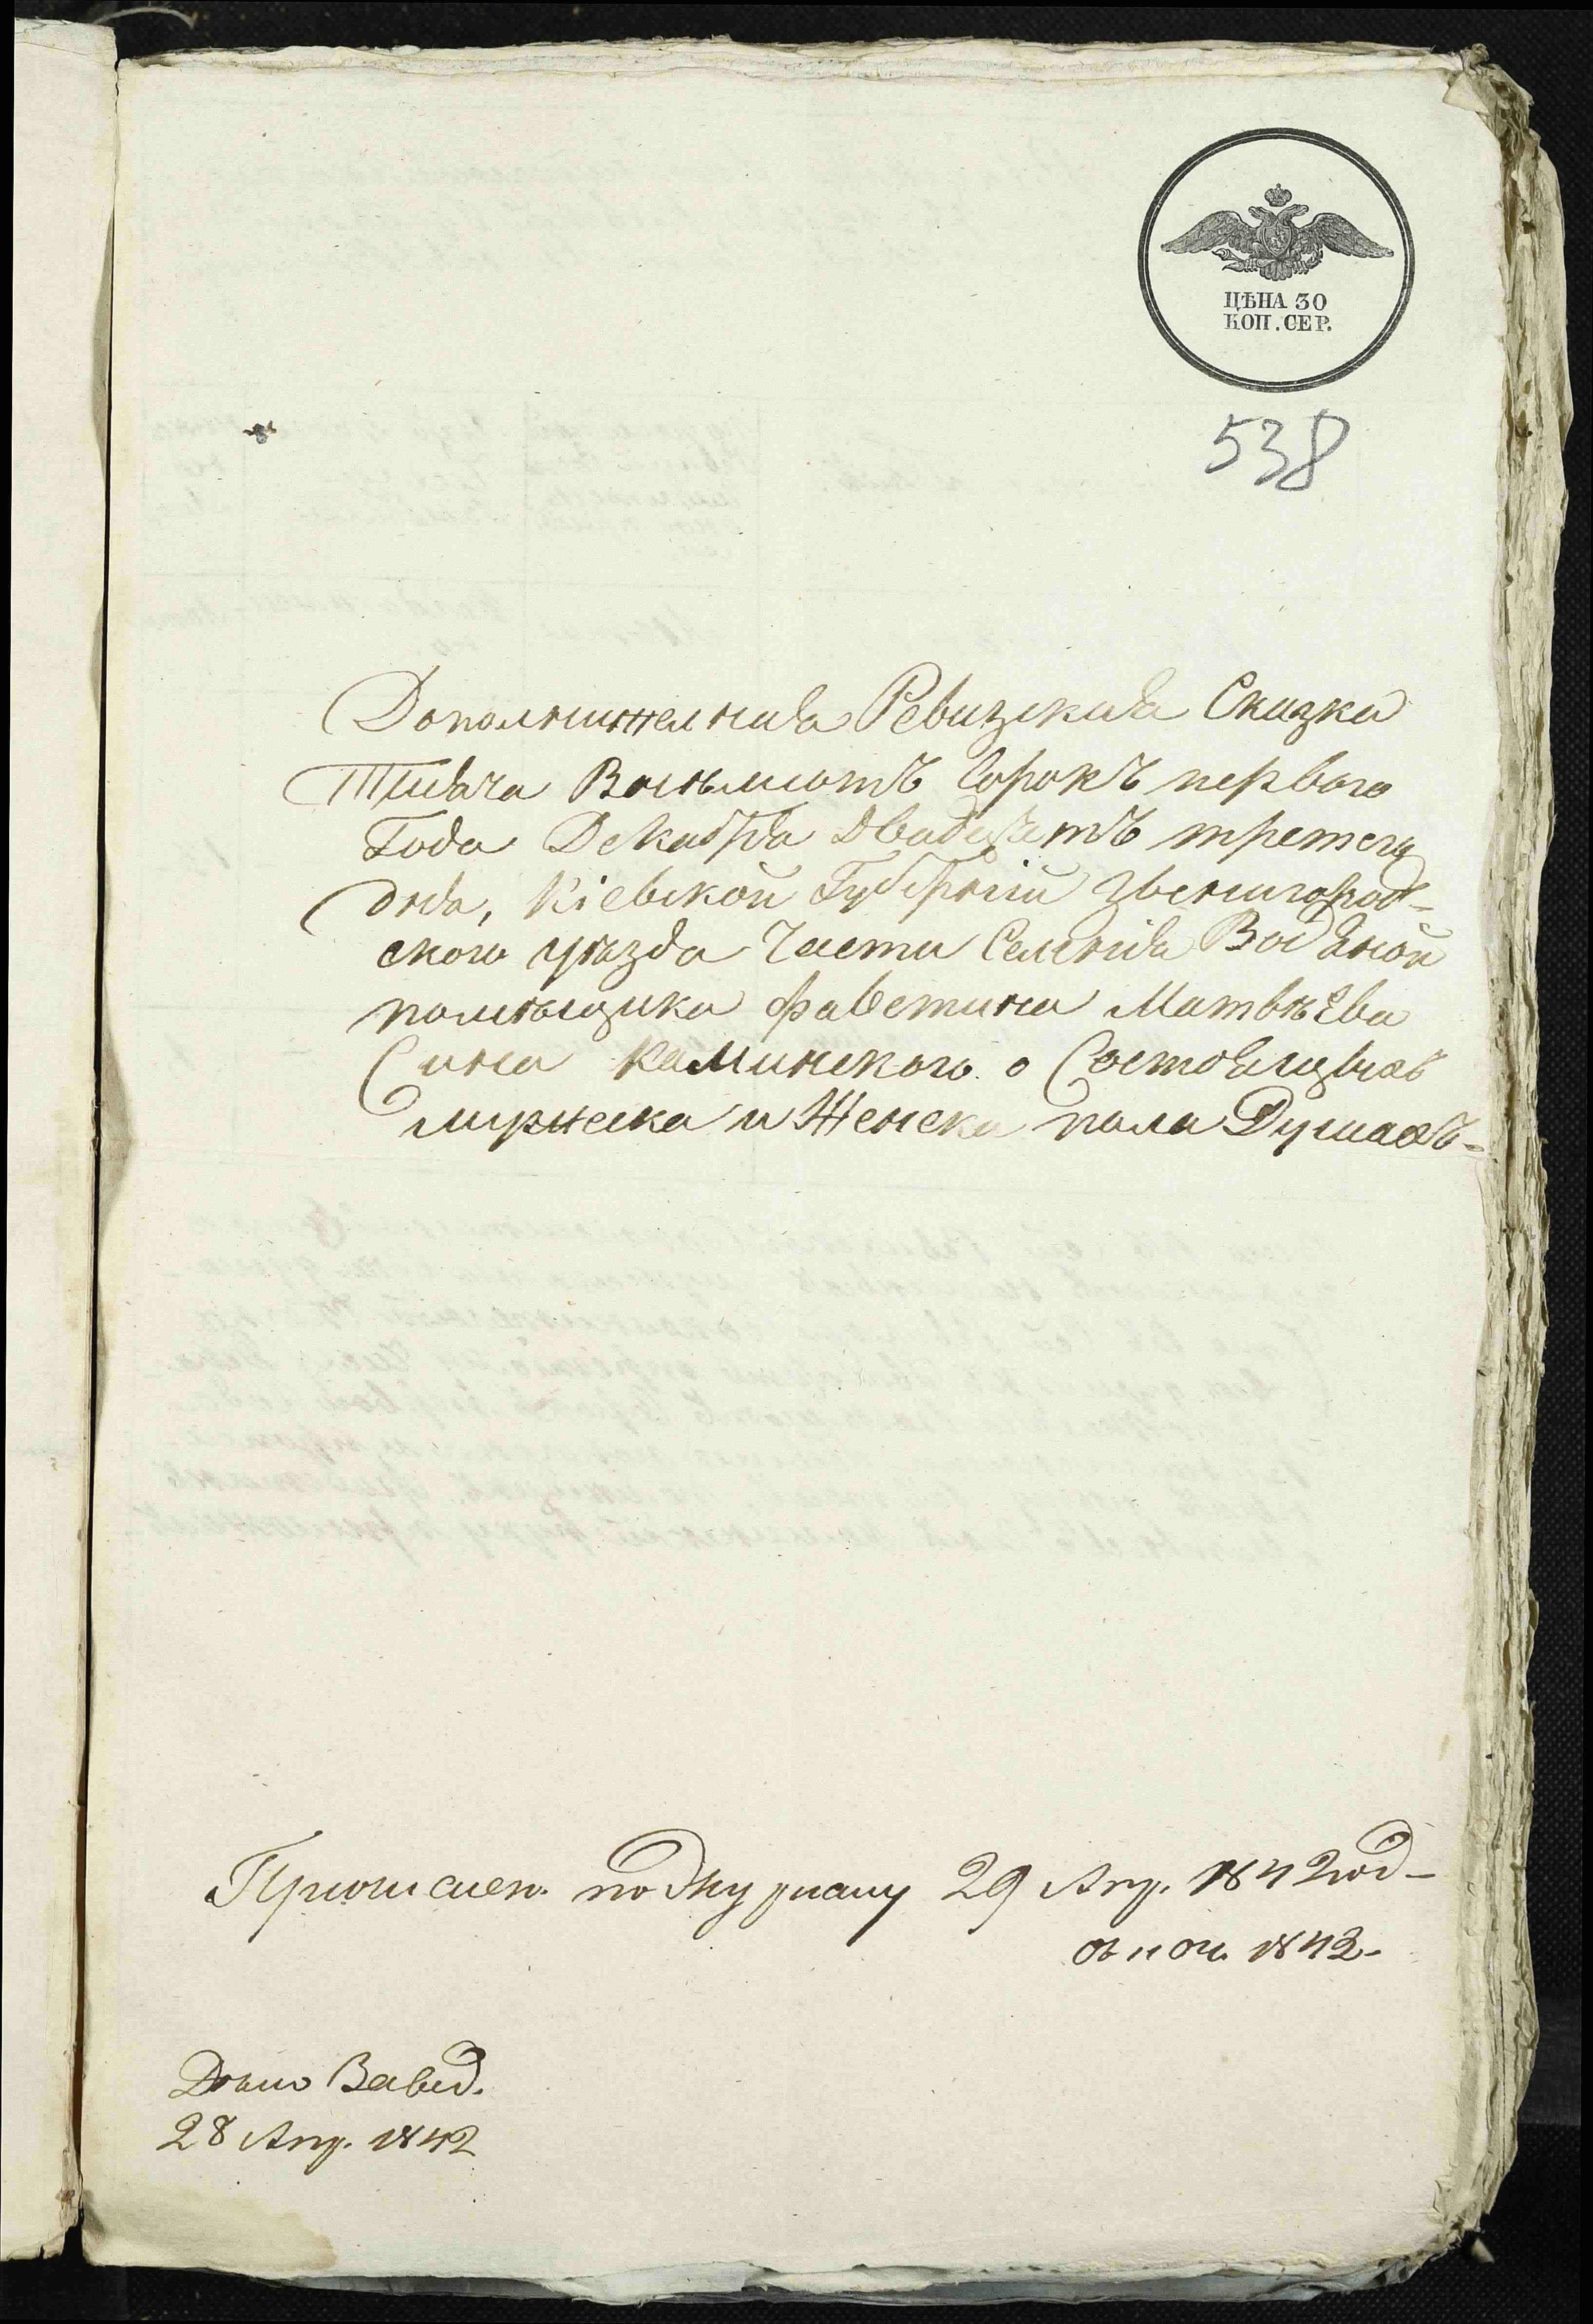 ЦѢНА 30
КОП. СЕР.
538
Дополнителная Ревизская Сказка
Тисяча Восьмсотъ Сорокъ первого
Года Декабря двадцятъ третего
дня, Кіевской Губерніи Звенигород-
ского уѣзда Части Селенія Водяной
помѣщика Фавстина Матвѣева
Сина Каминского о Состоящихъ
мужеска и Женска пола Душахъ-
по журналу 29 Апр. 1842 год-
1842-
28 Апр. 1842